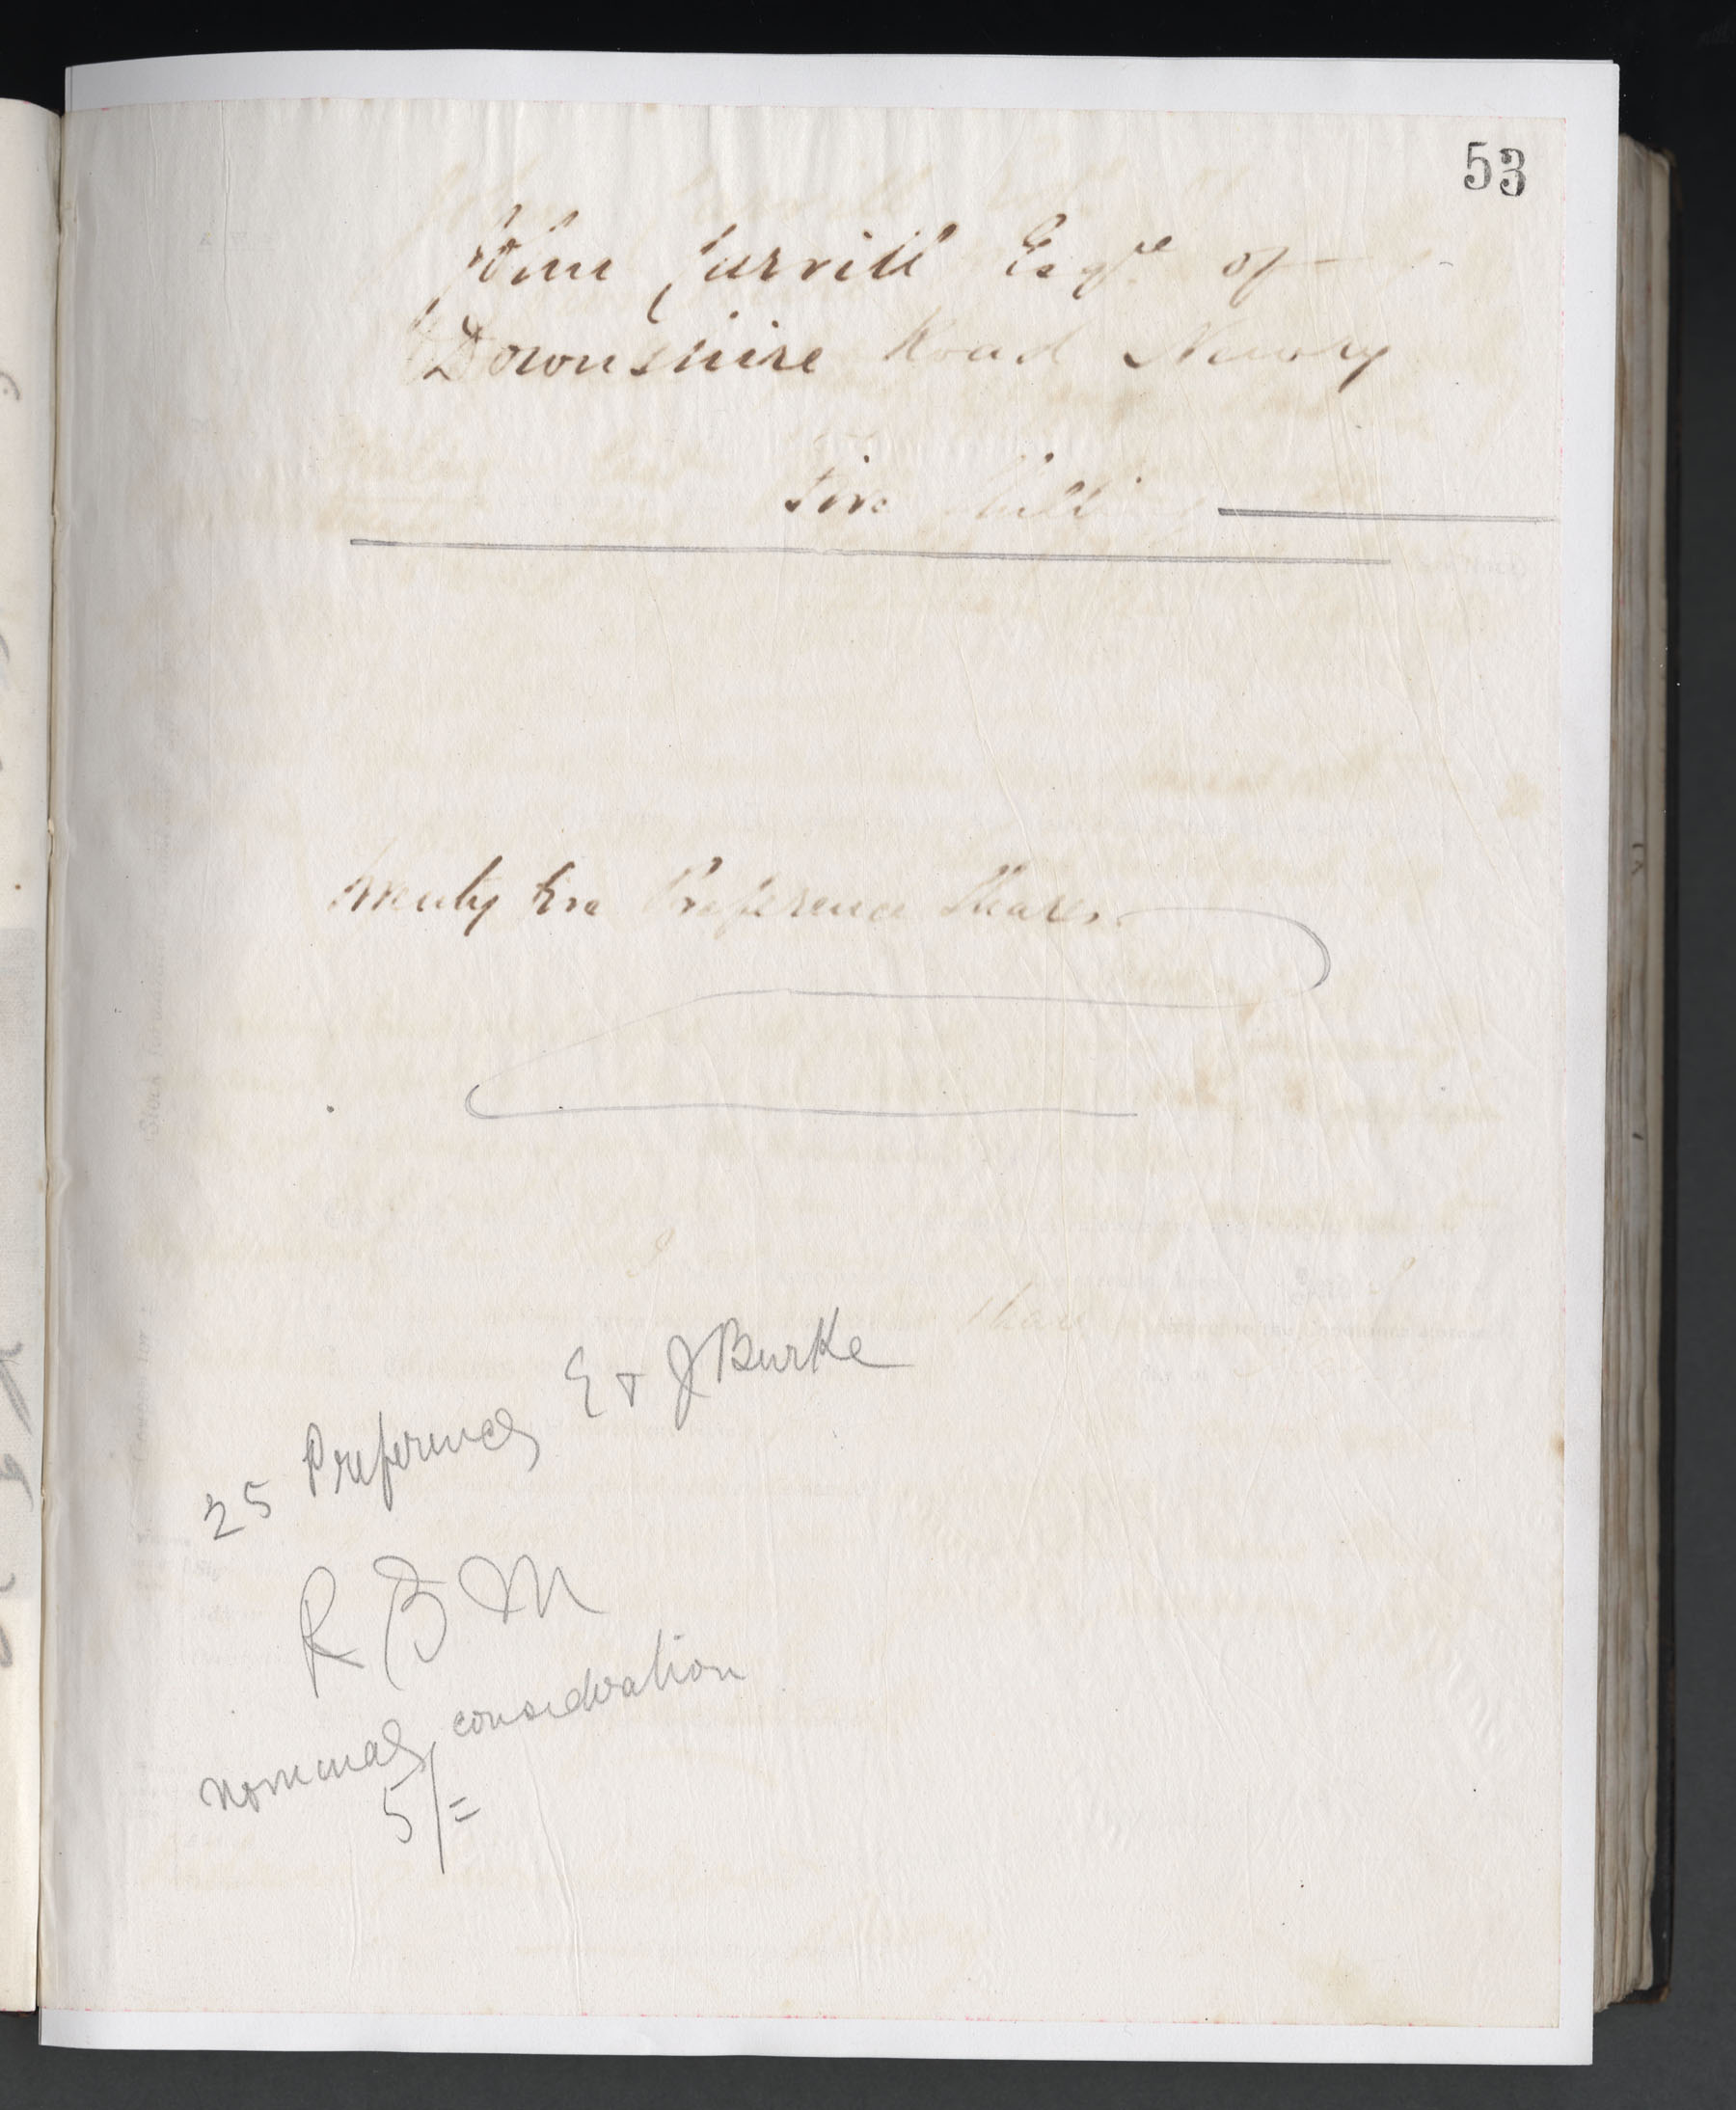 53
John Jarvill Esqre of
Downshire Road Newry
Five Shillings
Twenty five Preference Shares
25 Preferences E & J Burke
R B M
nominal consideration
5/=